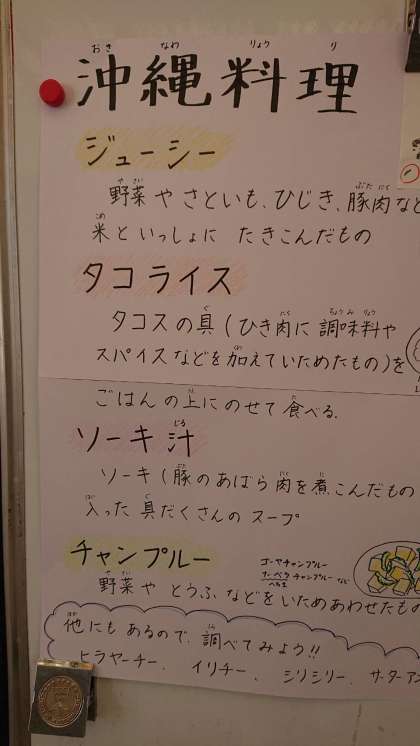 沖縄料理
ジューシー
野菜や さといも、ひじき、豚肉など
米といっしょに たきこんだもの
タコライス
タコスの具(ひき肉に調味料や
スパイスなどを加えていためたもの)を
ごはんの上にのせて食べる。
ソーキ汁
ソーキ(豚のあばら肉を煮こんだもの
入った具だくさんのスープ
チャンプルー
ゴーヤチャンプルー
ナーベラチャンプルーなど
へちま
野菜や とうふなどをいためあわせたもの
他にもあるので、調べてみよう!!
ヒラヤーチー、イリチー、シリシリー、サーターアン